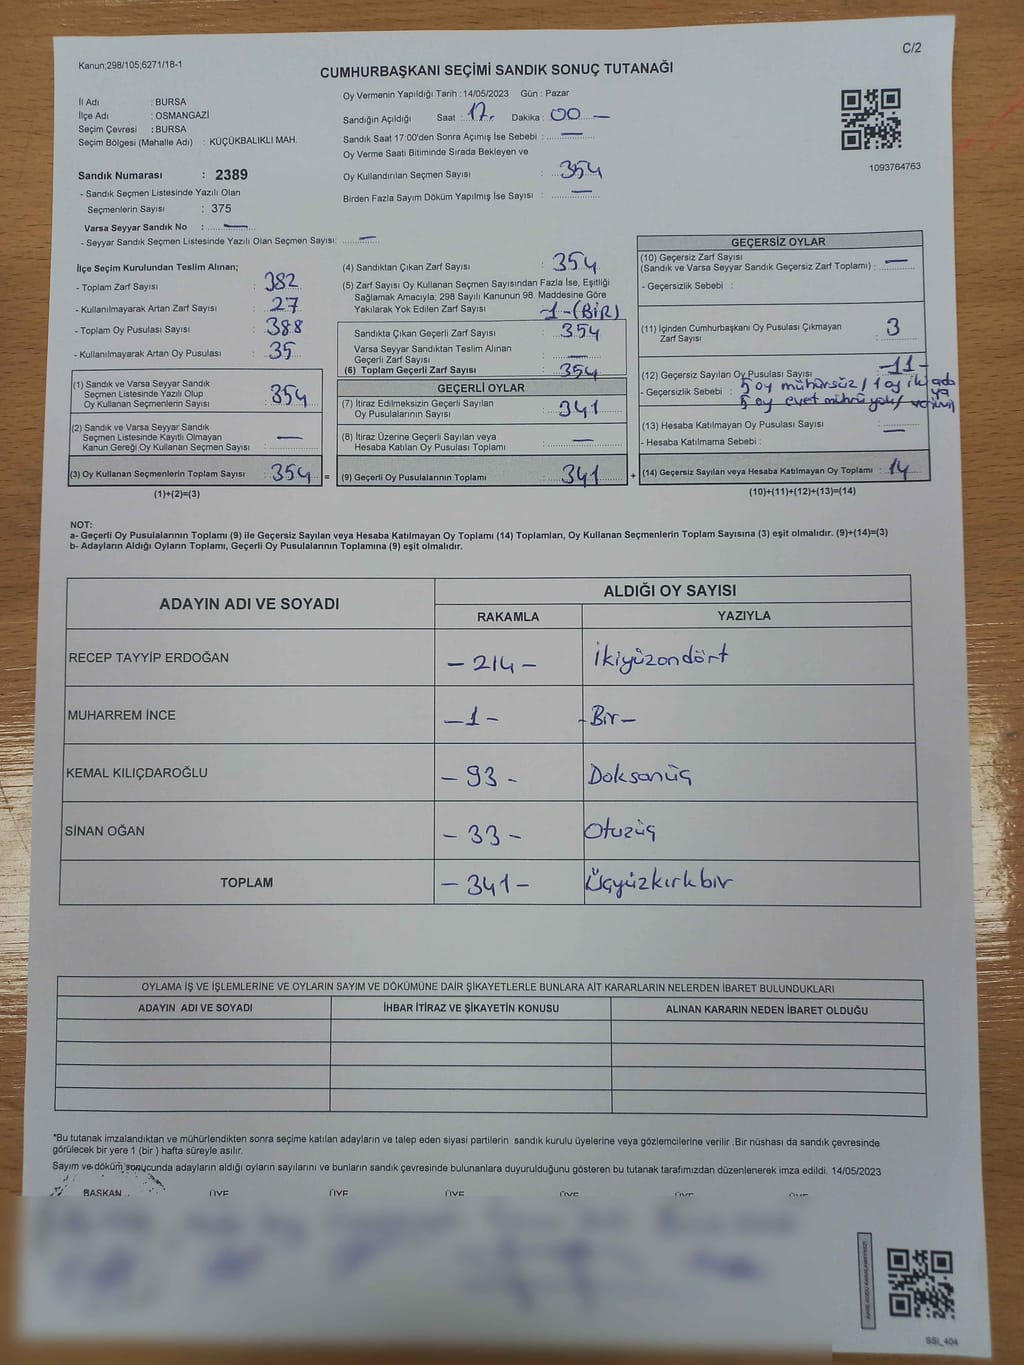 C/2
Kanun;298/105;6271/18-1
CUMHURBAŞKANI SEÇİMİ SANDIK SONUÇ TUTANAĞI
İl Adı : BURSA
İlçe Adı : OSMANGAZİ
Seçim Çevresi : BURSA
Seçim Bölgesi (Mahalle Adı) : KÜÇÜKBALIKLI MAH.
Sandık Numarası : 2389
- Sandık Seçmen Listesinde Yazılı Olan
Seçmenlerin Sayısı : 375
Varsa Seyyar Sandık No : —
- Seyyar Sandık Seçmen Listesinde Yazılı Olan Seçmen Sayısı: —
Oy Vermenin Yapıldığı Tarih : 14/05/2023 Gün : Pazar
Sandığın Açıldığı Saat : 17. Dakika : 00 —
Sandık Saat 17:00'den Sonra Açımış İse Sebebi : —
Oy Verme Saati Bitiminde Sırada Bekleyen ve
Oy Kullandırılan Seçmen Sayısı : 354
Birden Fazla Sayım Döküm Yapılmış İse Sayısı : —
1093764763
İlçe Seçim Kurulundan Teslim Alınan;
- Toplam Zarf Sayısı : 382
- Kullanılmayarak Artan Zarf Sayısı : 27
- Toplam Oy Pusulası Sayısı : 388
- Kullanılmayarak Artan Oy Pusulası : 35
(1) Sandık ve Varsa Seyyar Sandık
Seçmen Listesinde Yazılı Olup
Oy Kullanan Seçmenlerin Sayısı : 354
(2) Sandık ve Varsa Seyyar Sandık
Seçmen Listesinde Kayıtlı Olmayan
Kanun Gereği Oy Kullanan Seçmen Sayısı : —
(3) Oy Kullanan Seçmenlerin Toplam Sayısı : 354 =
(1)+(2)=(3)
(4) Sandıktan Çıkan Zarf Sayısı : 354
(5) Zarf Sayısı Oy Kullanan Seçmen Sayısından Fazla İse, Eşitliği
Sağlamak Amacıyla; 298 Sayılı Kanunun 98. Maddesine Göre
Yakılarak Yok Edilen Zarf Sayısı : -1-(BİR)
Sandıkta Çıkan Geçerli Zarf Sayısı : 354
Varsa Seyyar Sandıktan Teslim Alınan
Geçerli Zarf Sayısı : —
(6) Toplam Geçerli Zarf Sayısı : 354
GEÇERLİ OYLAR
(7) İtiraz Edilmeksizin Geçerli Sayılan
Oy Pusulalarının Sayısı : 341
(8) İtiraz Üzerine Geçerli Sayılan veya
Hesaba Katılan Oy Pusulası Toplamı : —
(9) Geçerli Oy Pusulalarının Toplamı : 341 +
GEÇERSİZ OYLAR
(10) Geçersiz Zarf Sayısı
(Sandık ve Varsa Seyyar Sandık Geçersiz Zarf Toplamı) : —
- Geçersizlik Sebebi :
(11) İçinden Cumhurbaşkanı Oy Pusulası Çıkmayan
Zarf Sayısı : 3
(12) Geçersiz Sayılan Oy Pusulası Sayısı : -11-
- Geçersizlik Sebebi : 5 oy mühürsüz / 1 oy iki ada
ya
5 oy evet mührü yok /
(13) Hesaba Katılmayan Oy Pusulası Sayısı : —
- Hesaba Katılmama Sebebi :
(14) Geçersiz Sayılan veya Hesaba Katılmayan Oy Toplamı : 14
(10)+(11)+(12)+(13)=(14)
NOT:
a- Geçerli Oy Pusulalarının Toplamı (9) ile Geçersiz Sayılan veya Hesaba Katılmayan Oy Toplamı (14) Toplamları, Oy Kullanan Seçmenlerin Toplam Sayısına (3) eşit olmalıdır. (9)+(14)=(3)
b- Adayların Aldığı Oyların Toplamı, Geçerli Oy Pusulalarının Toplamına (9) eşit olmalıdır.
ADAYIN ADI VE SOYADI ALDIĞI OY SAYISI
RAKAMLA YAZIYLA
RECEP TAYYİP ERDOĞAN - 214 - İkiyüzondört
MUHARREM İNCE - 1 - - Bir -
KEMAL KILIÇDAROĞLU - 93 - Doksanüç
SİNAN OĞAN - 33 - Otuzüç
TOPLAM - 341 - Üçyüzkırkbir
OYLAMA İŞ VE İŞLEMLERİNE VE OYLARIN SAYIM VE DÖKÜMÜNE DAİR ŞİKAYETLERLE BUNLARA AİT KARARLARIN NELERDEN İBARET BULUNDUKLARI
ADAYIN ADI VE SOYADI İHBAR İTİRAZ VE ŞİKAYETİN KONUSU ALINAN KARARIN NEDEN İBARET OLDUĞU
*Bu tutanak imzalandıktan ve mühürlendikten sonra seçime katılan adayların ve talep eden siyasi partilerin sandık kurulu üyelerine veya gözlemcilerine verilir .Bir nüshası da sandık çevresinde
görülecek bir yere 1 (bir ) hafta süreyle asılır.
Sayım ve döküm sonucunda adayların aldığı oyların sayılarını ve bunların sandık çevresinde bulunanlara duyurulduğunu gösteren bu tutanak tarafımızdan düzenlenerek imza edildi. 14/05/2023
BAŞKAN ÜYE ÜYE ÜYE ÜYE ÜYE ÜYE
SSI_404